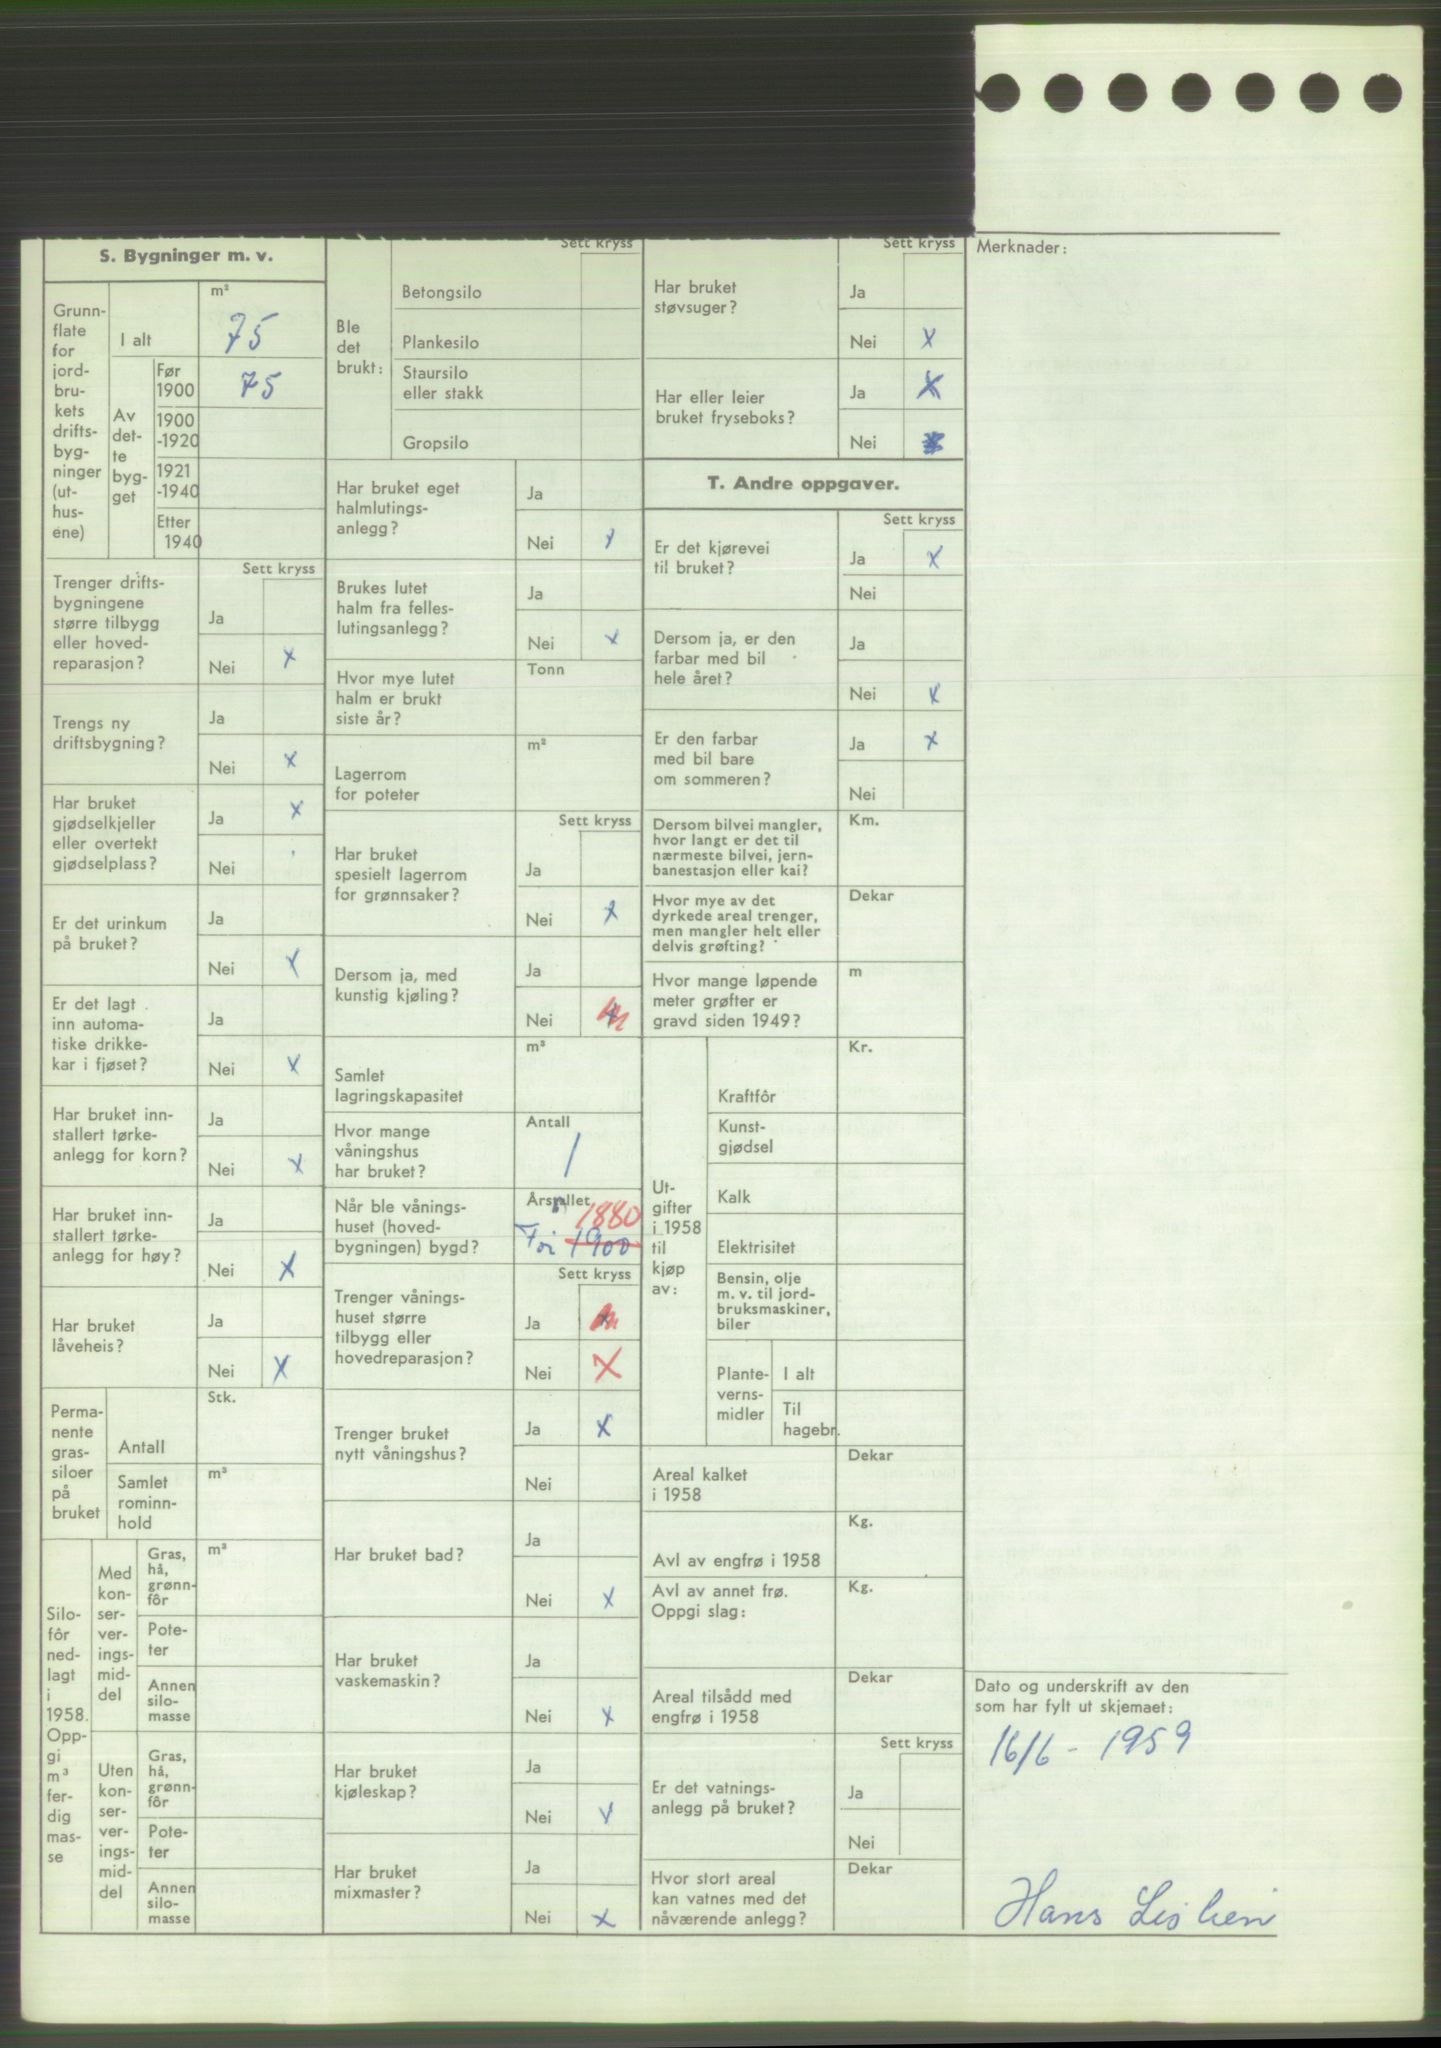 S. Bygninger m. v.
Grunn-
flate
for
jord-
bru-
kets
drifts-
byg-
ninger
(ut-
hus-
ene)
I alt
m²
75
Av
det-
te
byg-
get
Før
1900
75
1900
-1920
1921
-1940
Etter
1940
Sett kryss
Trenger drifts-
bygningene
større tilbygg
eller hoved-
reparasjon?
Ja
Nei x
Trengs ny
driftsbygning?
Ja
Nei x
Har bruket
gjødselkjeller
eller overtekt
gjødselplass?
Ja x
Nei
Er det urinkum
på bruket?
Ja
Nei x
Er det lagt
inn automa-
tiske drikke-
kar i fjøset?
Ja
Nei x
Har bruket inn-
stallert tørke-
anlegg for korn?
Ja
Nei x
Har bruket inn-
stallert tørke-
anlegg for høy?
Ja
Nei x
Har bruket
låveheis?
Ja
Nei x
Perma-
nente
gras-
siloer
på
bruket
Antall
Stk.
Samlet
rominn-
hold
m³
Silo-
fôr
ned-
lagt
i
1958.
Opp-
gi
m³
fer-
dig
mas-
se
Med
kon-
ser-
ver-
ings-
mid-
del
Gras,
hå,
grønn-
fôr
m³
Pote-
ter
Annen
silo-
masse
Uten
kon-
ser-
ver-
ings-
mid-
del
Gras,
hå,
grønn-
fôr
Pote-
ter
Annen
silo-
masse
Sett kryss
Ble
det
brukt:
Betongsilo
Plankesilo
Staursilo
eller stakk
Gropsilo
Har bruket eget
halmlutings-
anlegg?
Ja
Nei x
Brukes lutet
halm fra felles-
lutingsanlegg?
Ja
Nei x
Hvor mye lutet
halm er brukt
siste år?
Tonn
Lagerrom
for poteter
m²
Sett kryss
Har bruket
spesielt lagerrom
for grønnsaker?
Ja
Nei x
Dersom ja, med
kunstig kjøling?
Ja
Nei x
Samlet
lagringskapasitet
m³
Hvor mange
våningshus
har bruket?
Antall
1
Når ble vånings-
huset (hoved-
bygningen) bygd?
Årstallet
1880
1900
Sett kryss
Trenger vånings-
huset større
tilbygg eller
hovedreparasjon?
Ja x
Nei X
Trenger bruket
nytt våningshus?
Ja x
Nei
Har bruket bad?
Ja
Nei x
Har bruket
vaskemaskin?
Ja
Nei x
Har bruket
kjøleskap?
Ja
Nei x
Har bruket
mixmaster?
Ja
Nei x
Sett kryss
Har bruket
støvsuger?
Ja
Nei x
Har eller leier
bruket fryseboks?
Ja x
Nei x
T. Andre oppgaver.
Sett kryss
Er det kjørevei
til bruket?
Ja x
Nei
Dersom ja, er den
farbar med bil
hele året?
Ja
Nei x
Er den farbar
med bil bare
om sommeren?
Ja x
Nei
Dersom bilvei mangler,
hvor langt er det til
nærmeste bilvei, jern-
banestasjon eller kai?
Km.
Hvor mye av det
dyrkede areal trenger,
men mangler helt eller
delvis grøfting?
Dekar
Hvor mange løpende
meter grøfter er
gravd siden 1949?
m
Ut-
gifter
i 1958
til
kjøp
av:
Kr.
Kraftfôr
Kunst-
gjødsel
Kalk
Elektrisitet
Bensin, olje
m. v. til jord-
bruksmaskiner,
biler
Plante-
verns-
midler
I alt
Til
hagebr.
Areal kalket
i 1958
Dekar
Avl av engfrø i 1958
Kg.
Avl av annet frø.
Oppgi slag:
Kg.
Areal tilsådd med
engfrø i 1958
Dekar
Sett kryss
Er det vatnings-
anlegg på bruket?
Ja
Nei
Hvor stort areal
kan vatnes med det
nåværende anlegg?
Dekar
Merknader:
Dato og underskrift av den
som har fylt ut skjemaet:
16/6 - 1959
Hans